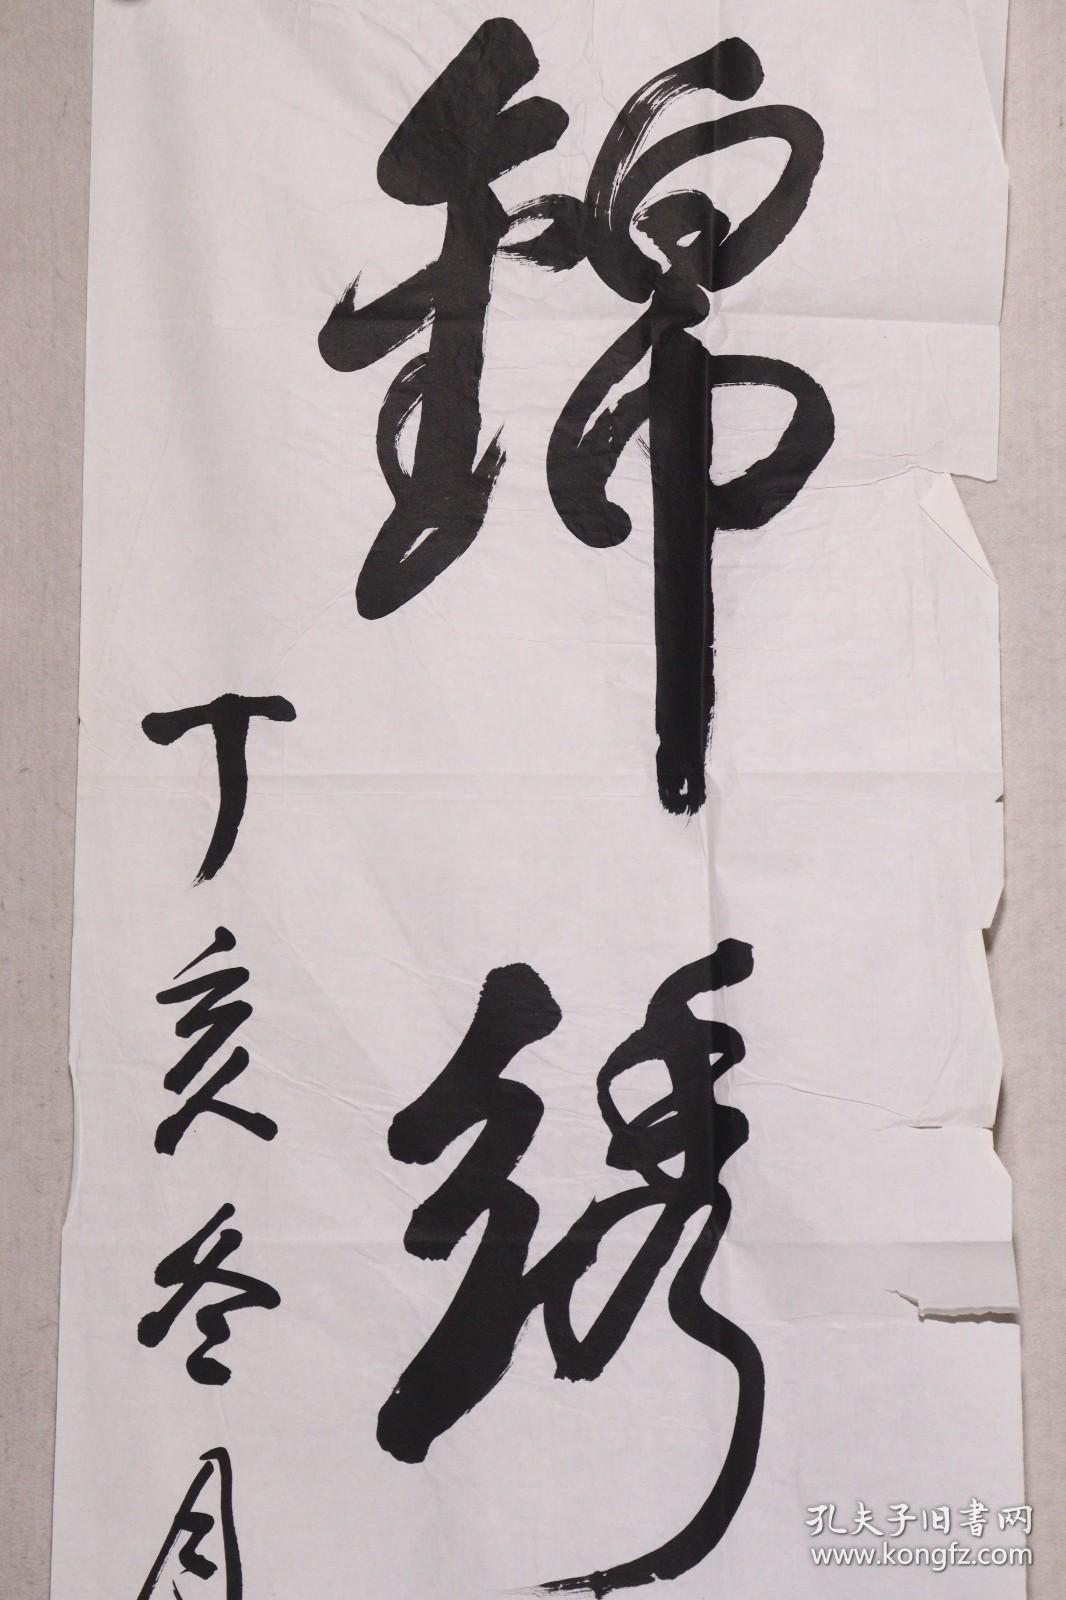 錦繡
丁亥冬月
孔夫子旧書网
www.kongfz.com